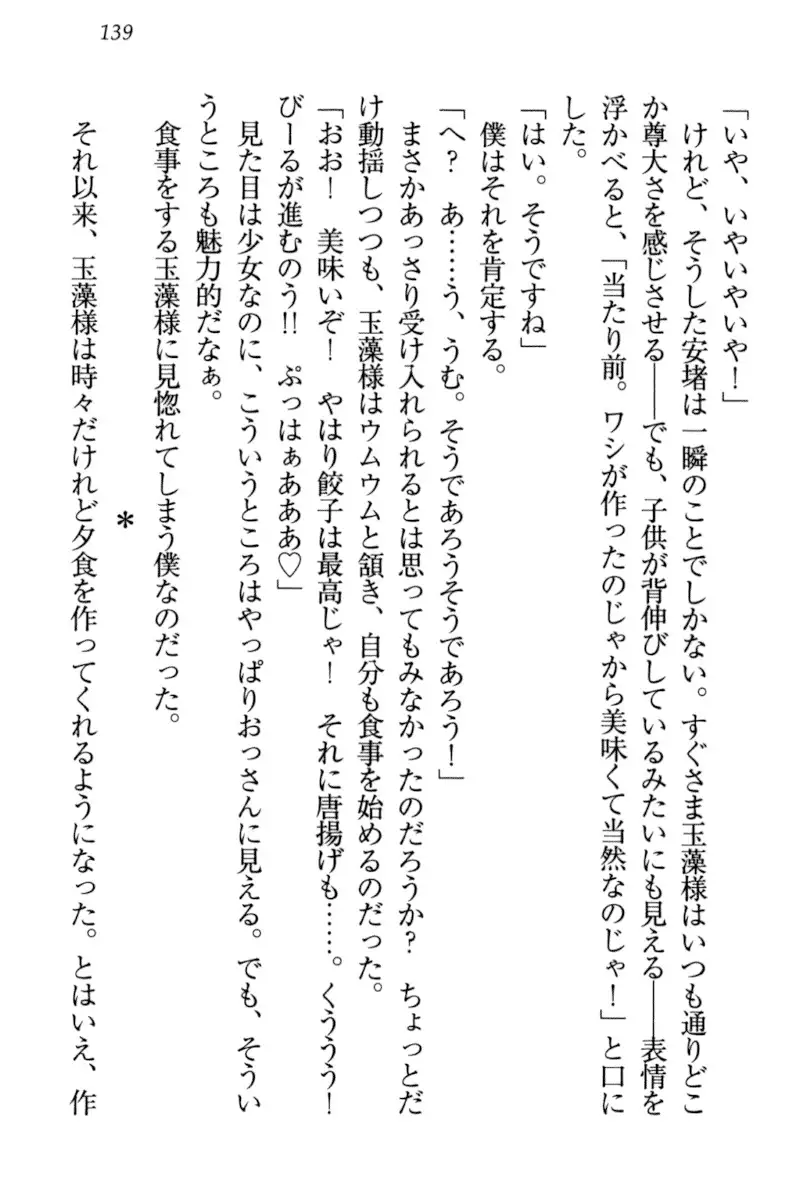 139
「いや、いやいやいや！」
　けれど、そうした安堵は一瞬のことでしかない。すぐさま玉藻様はいつも通りどこ
か尊大さを感じさせる――でも、子供が背伸びしているみたいにも見える――表情を
浮かべると、「当たり前。ワシが作ったのじゃから美味くて当然なのじゃ！」と口に
した。
「はい。そうですね」
　僕はそれを肯定する。
「へ？　あ……う、うむ。そうであろうそうであろう！」
　まさかあっさり受け入れられるとは思ってもみなかったのだろうか？　ちょっとだ
け動揺しつつも、玉藻様はウムウムと頷き、自分も食事を始めるのだった。
「おお！　美味いぞ！　やはり餃子は最高じゃ！　それに唐揚げも……。くううう！
びーるが進むのう!!　ぷっはぁあああ♡」
　見た目は少女なのに、こういうところはやっぱりおっさんに見える。でも、そうい
うところも魅力的だなぁ。
　食事をする玉藻様に見惚れてしまう僕なのだった。
＊
　それ以来、玉藻様は時々だけれど夕食を作ってくれるようになった。とはいえ、作